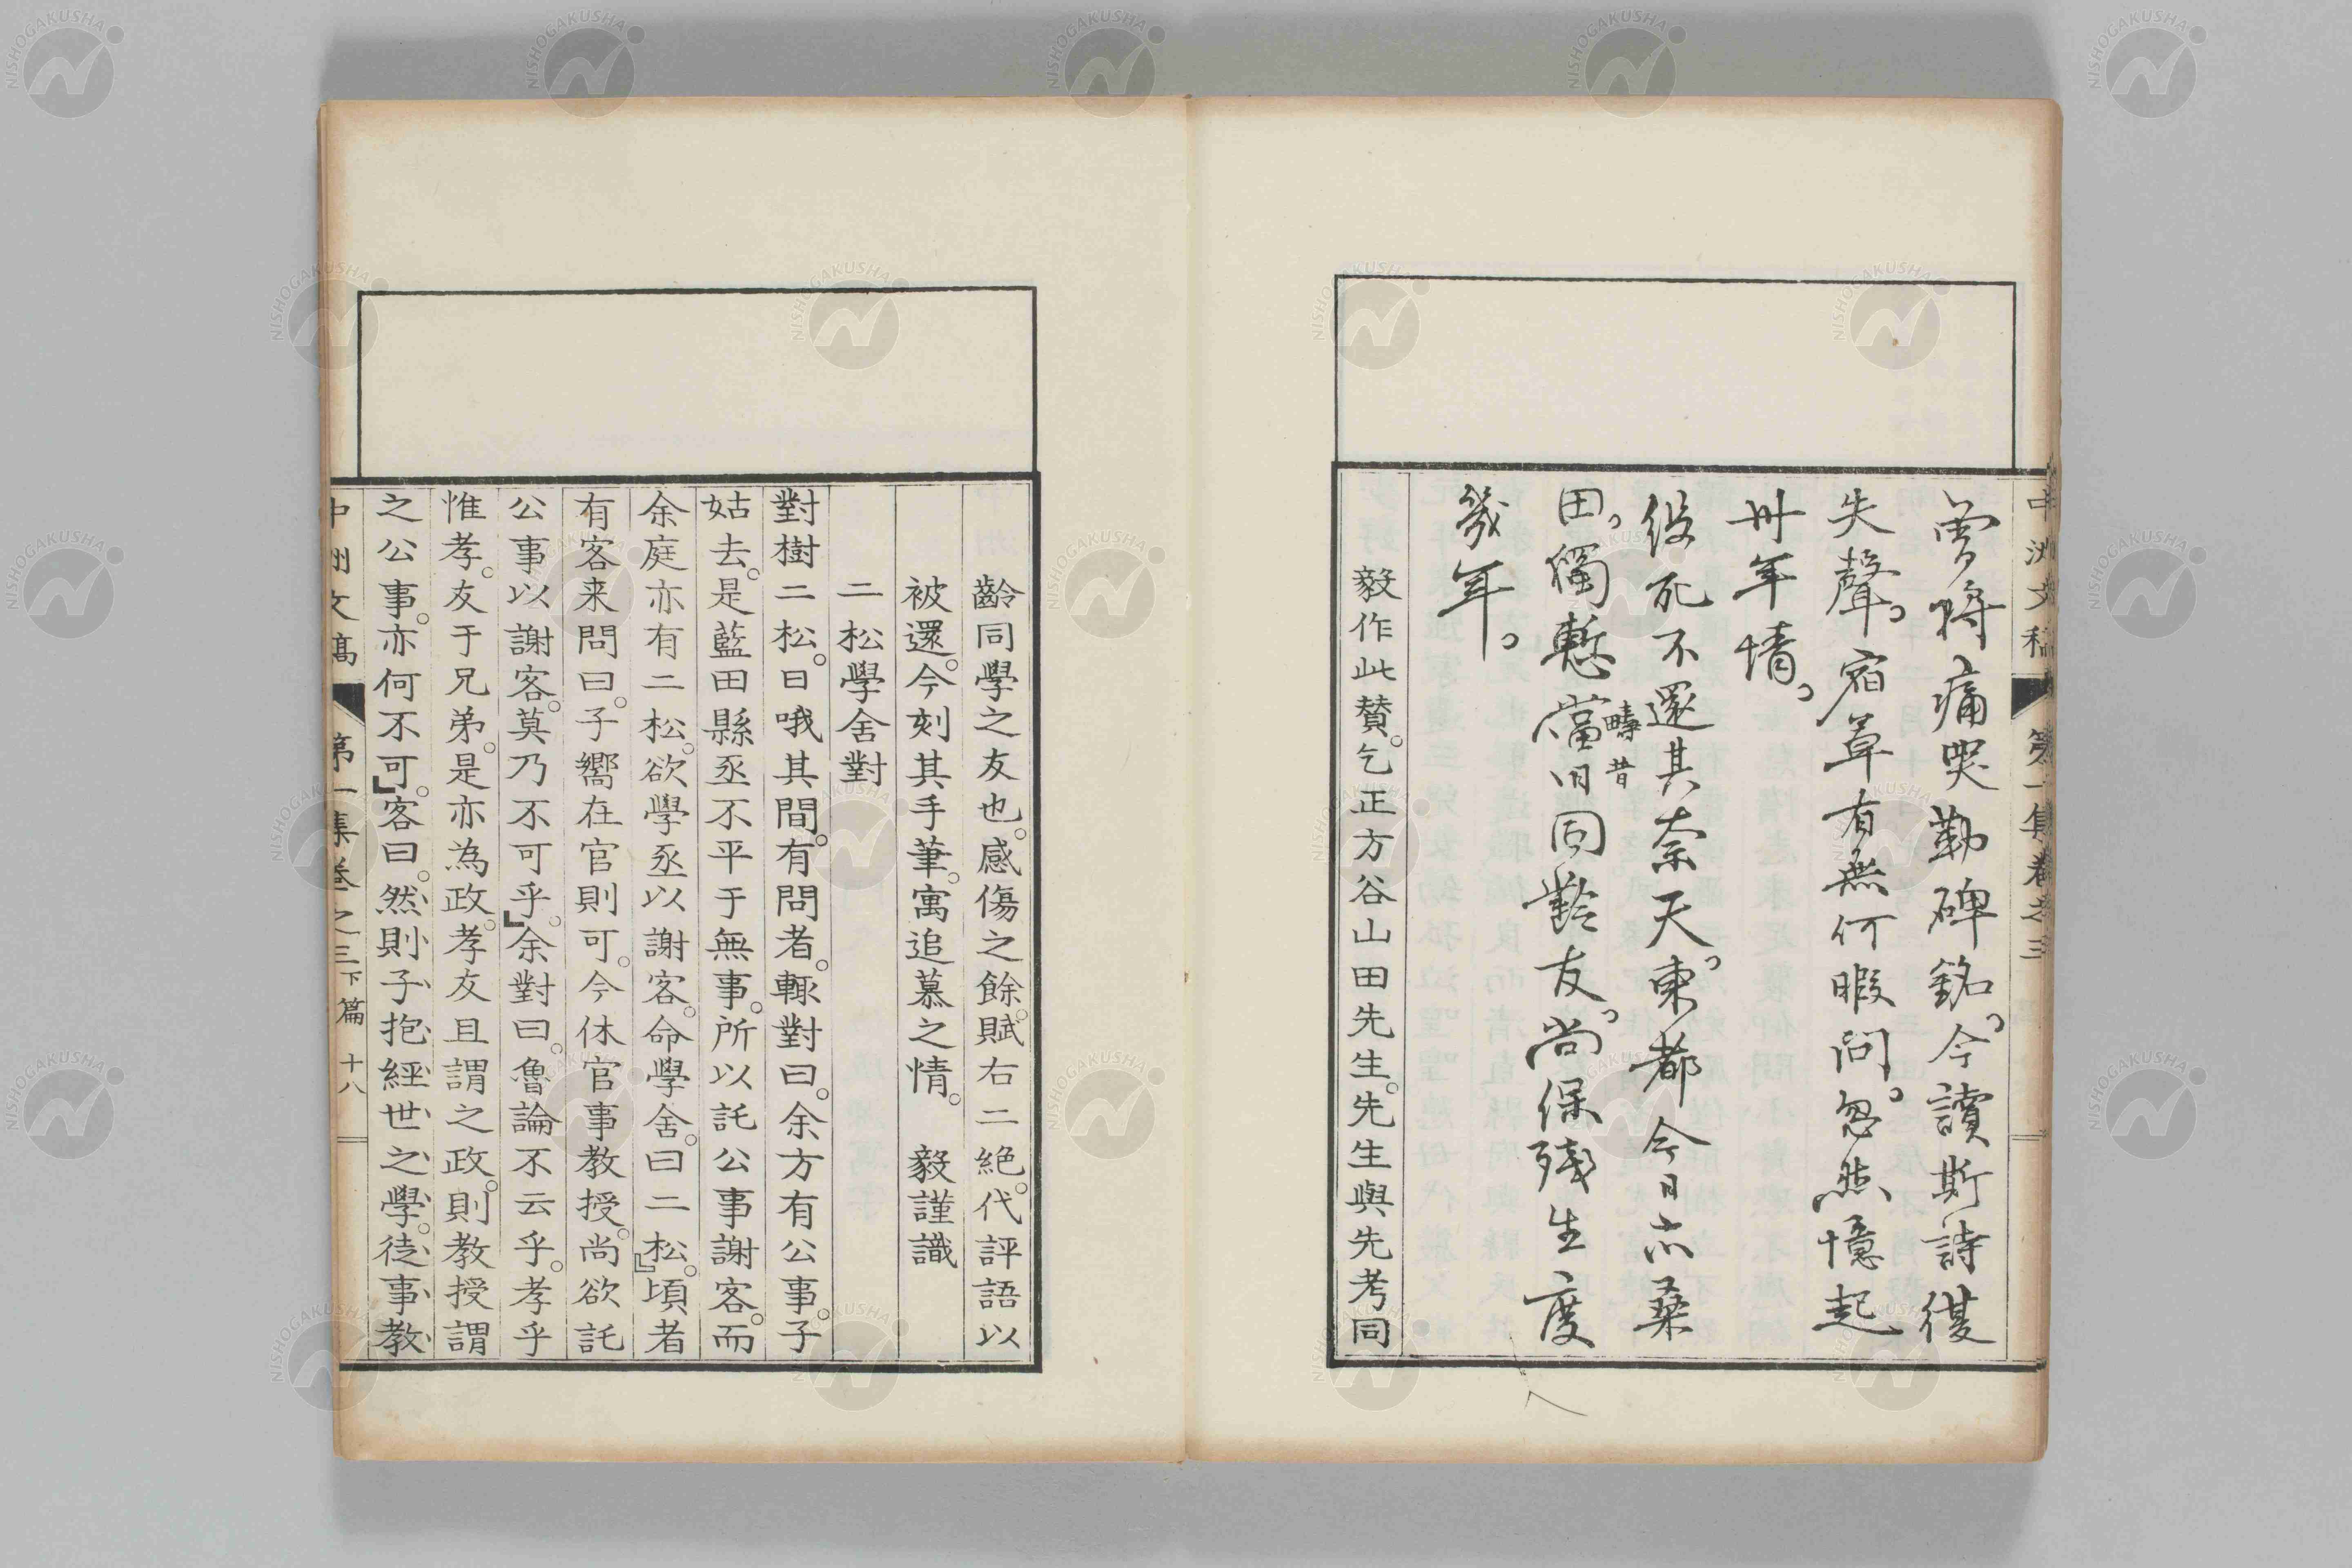 中洲文稿 第一集卷之三
曽將痛哭勒碑銘。今讀斯詩復
失聲。宿草有無何暇問。忽然憶起
卅年情。
役死不還其奈天。東都今日亦桑
田。獨慙當旧同齡友。尚保殘生度
疇昔
幾年。
毅作此贊。乞正方谷山田先生。先生與先考同
齡同學之友也。感傷之餘。賦右二絶。代評語以
被還。今刻其手筆。寓追慕之情。 毅謹識
二松學舍對
對樹二松。日哦其間。有問者。輙對曰。余方有公事。子
姑去。是藍田縣丞不平于無事。所以託公事謝客。而
余庭亦有二松。欲學丞以謝客。命學舍。曰二松。』頃者
有客来問曰。子嚮在官則可。今休官事教授。尚欲託
公事以謝客。莫乃不可乎。』余對曰。魯論不云乎。孝乎
惟孝。友于兄弟。是亦為政。孝友且謂之政。則教授謂
之公事。亦何不可。』客曰。然則子抱經世之學。徒事教
中洲文稿 第一集卷之三下篇 十八
NISHOGAKUSHA